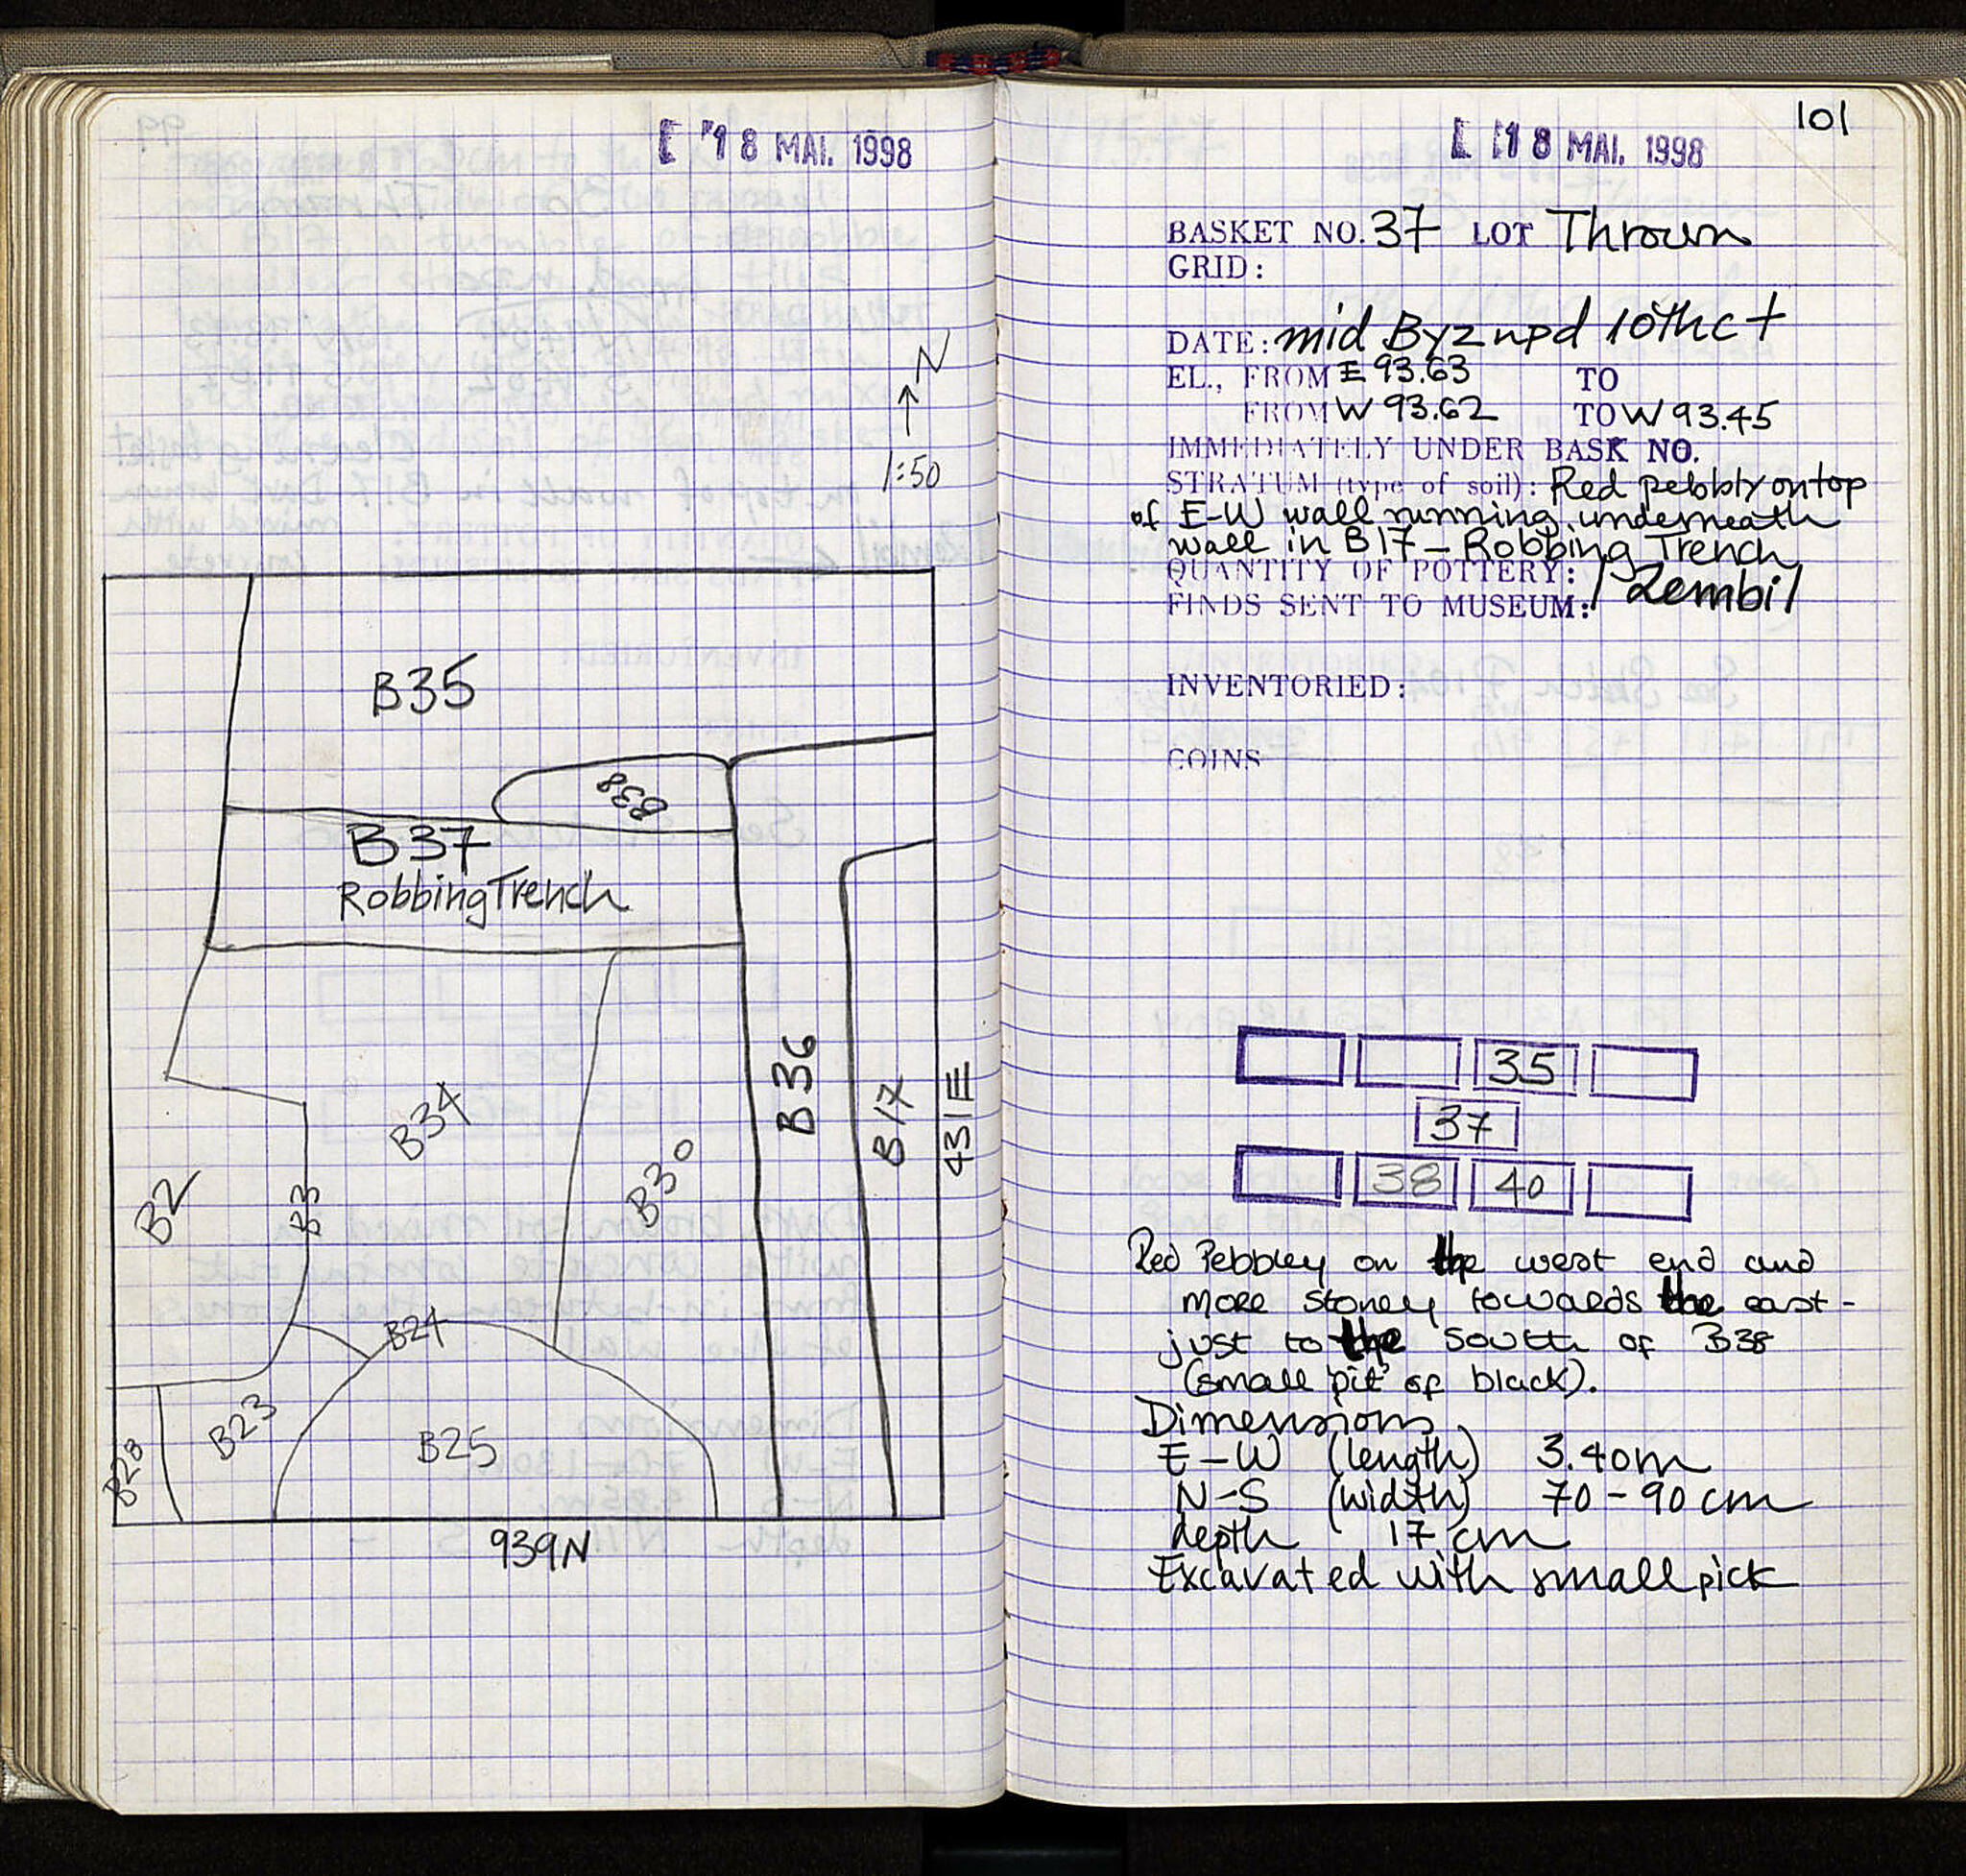 18 MAI. 1998
N
1:50
B35
B38
B37
Robbing Trench
B36
B17
431E
B34
B30
B2
B3
B24
B23
B25
B28
939N
101
18 MAI. 1998
BASKET NO. 37 LOT Thrown
GRID:
DATE: mid Byz npd 10th c +
EL., FROM E 93.63 TO
FROM W 93.62 TO W 93.45
IMMEDIATELY UNDER BASK NO.
STRATUM (type of soil): Red pebbly on top
of E-W wall running underneath
wall in B17 - Robbing Trench
QUANTITY OF POTTERY: 1 Zembil
FINDS SENT TO MUSEUM:
INVENTORIED:
COINS
35
37
38 40
Red Pebbley on the west end and
more stoney towards the east -
just to the South of B38
(small 'pit' of black).
Dimensions
E-W (length) 3.40m
N-S (width) 70-90 cm
depth 17 cm
Excavated with small pick